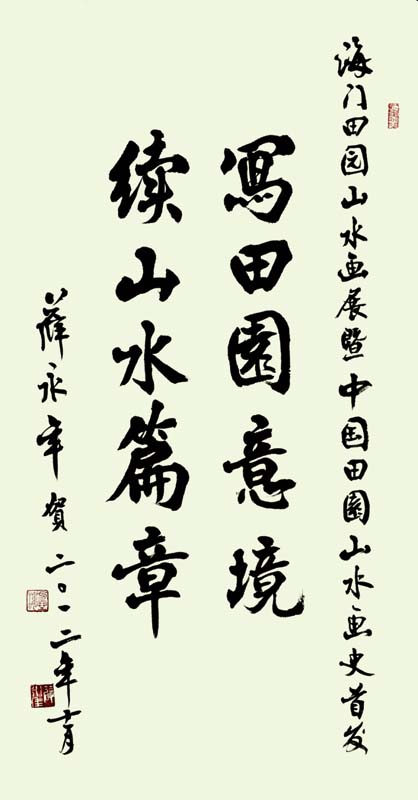 海门田园山水画展暨中国田園山水画史首发
寫田園意境
续山水篇章
薛永年賀二〇一二年十月